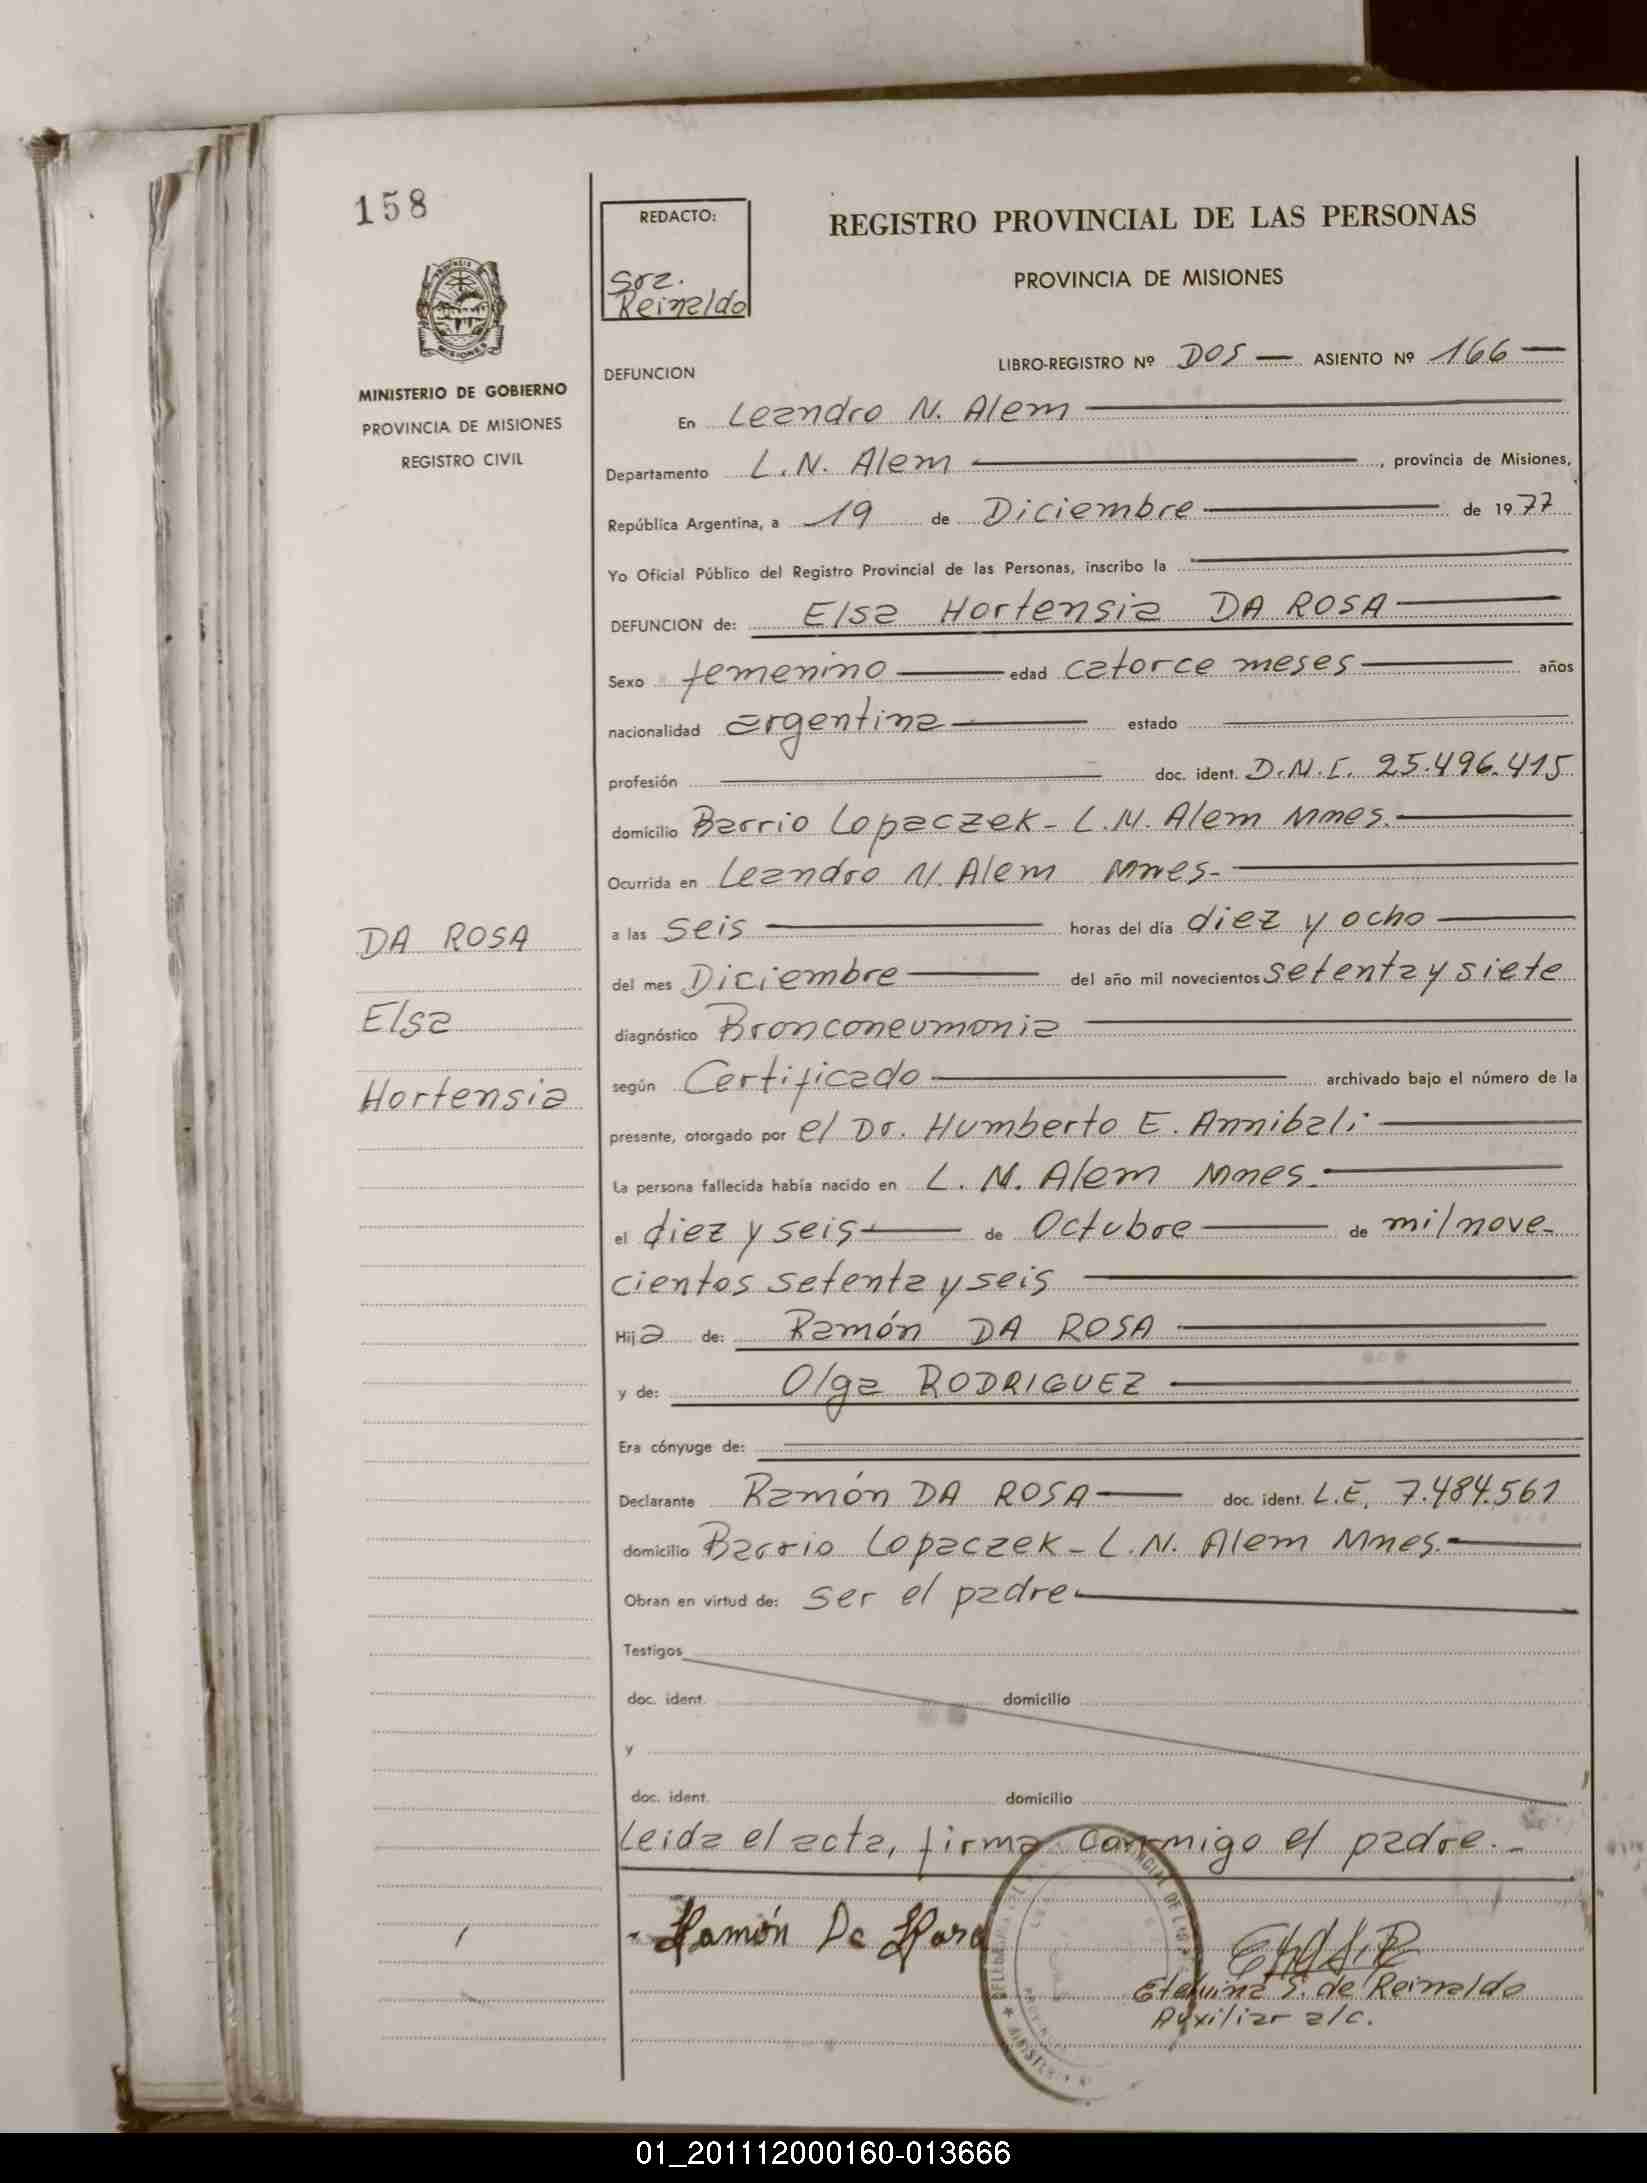 158
REDACTO:
Sra.
Reinaldo
REGISTRO PROVINCIAL DE LAS PERSONAS
PROVINCIA DE MISIONES
MISIONES
MINISTERIO DE GOBIERNO
PROVINCIA DE MISIONES
REGISTRO CIVIL
DEFUNCION
LIBRO-REGISTRO Nº DOS — ASIENTO Nº 166 —
En Leandro N. Alem
Departamento L. N. Alem , provincia de Misiones,
República Argentina, a 19 de Diciembre de 1977
Yo Oficial Público del Registro Provincial de las Personas, inscribo la
DEFUNCION de: Elsa Hortensia DA ROSA
Sexo femenino edad catorce meses años
nacionalidad argentina estado
profesión doc. ident. D.N.I. 25.496.415
domicilio Barrio Lopaczek - L.N. Alem Mnes.
Ocurrida en Leandro N. Alem Mnes.
a las seis horas del día diez y ocho
del mes Diciembre del año mil novecientos setenta y siete
diagnóstico Bronconeumonia
según Certificado archivado bajo el número de la
presente, otorgado por el Dr. Humberto E. Annibali
La persona fallecida había nacido en L. N. Alem Mnes.
el diez y seis de Octubre de mil nove-
cientos setenta y seis
Hija de: Ramón DA ROSA
y de: Olga RODRIGUEZ
Era cónyuge de:
Declarante Ramón DA ROSA doc. ident. L.E. 7.484.561
domicilio Barrio Lopaczek - L.N. Alem Mnes.
Obran en virtud de: ser el padre
Testigos
doc. ident. domicilio
y
doc. ident. domicilio
Leida el acta, firma conmigo el padre.-
DA ROSA
Elsa
Hortensia
Ramón Da Rosa
Etelvina S. de Reinaldo
Auxiliar a/c.
01_201112000160-013666